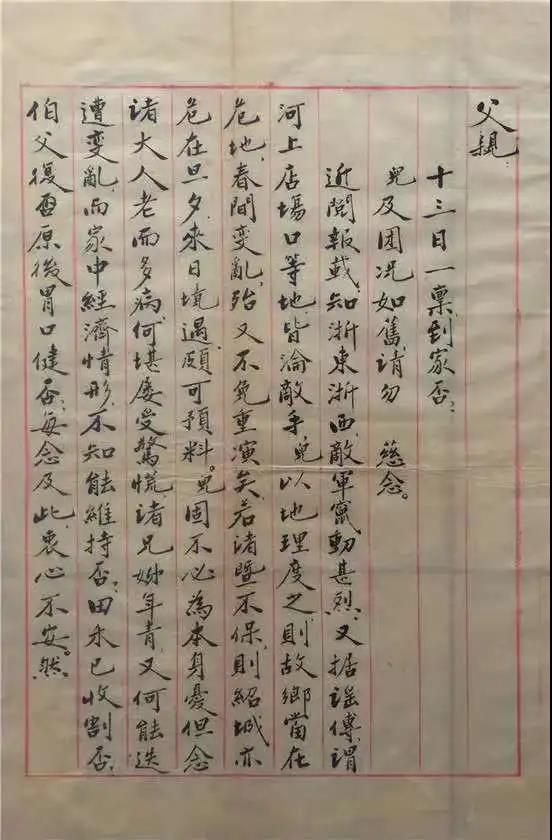 父親：
十三日一稟，到家否；
兒及团况如舊，请勿　慈念。
近閱報載，知浙東浙西，敵軍竄動甚烈，又据谣傳，謂
河上店場口等地，皆淪敵手，兒以地理度之，則故鄉當在
危地，春間变亂，殆又不免重演矣，若诸暨不保，則紹城亦
危在旦夕，来日境遇，頗可預料。兒固不必為本身憂，但念
诸大人老而多病，何堪屡受驚慌，诸兄姊年青，又何能迭
遭变亂，而家中經濟情形，不知能維持否；田禾已收割否；
伯父復否原後胃口健否；每念及此，衷心不安。然